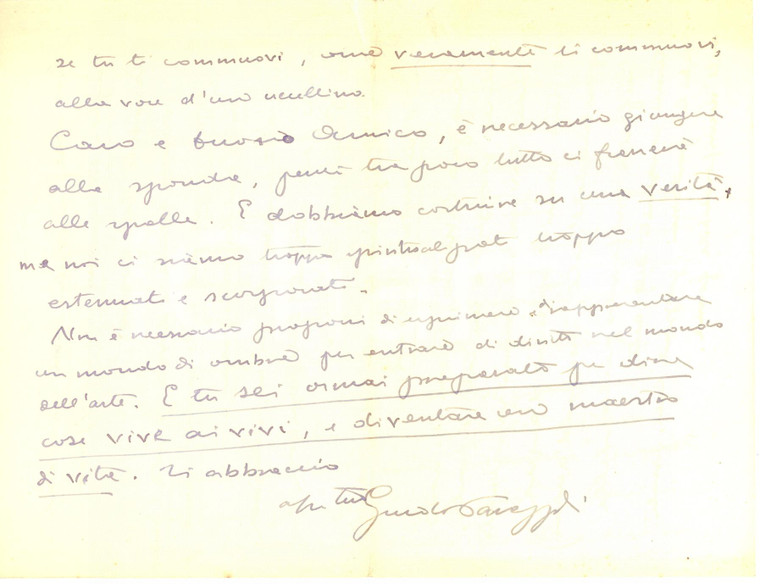 se tu ti commuovi, come veramente ti commuovi,
alla voce d'uno uccellino.
Caro e buono Amico, è necessario giungere
alla sponda, perché tra poco tutto ci franerà
alle spalle. E dobbiamo costruire su una verità,
ma noi ci siamo troppo spiritualizzati troppo
estenuati e scorporati.
Non è necessario proporsi di esprimere e rappresentare
un mondo di ombre per entrare di diritto nel mondo
dell'arte. E tu sei ormai preparato per dire
cose vive ai vivi, e diventare uno maestro
di vita. Ti abbraccio
Guido